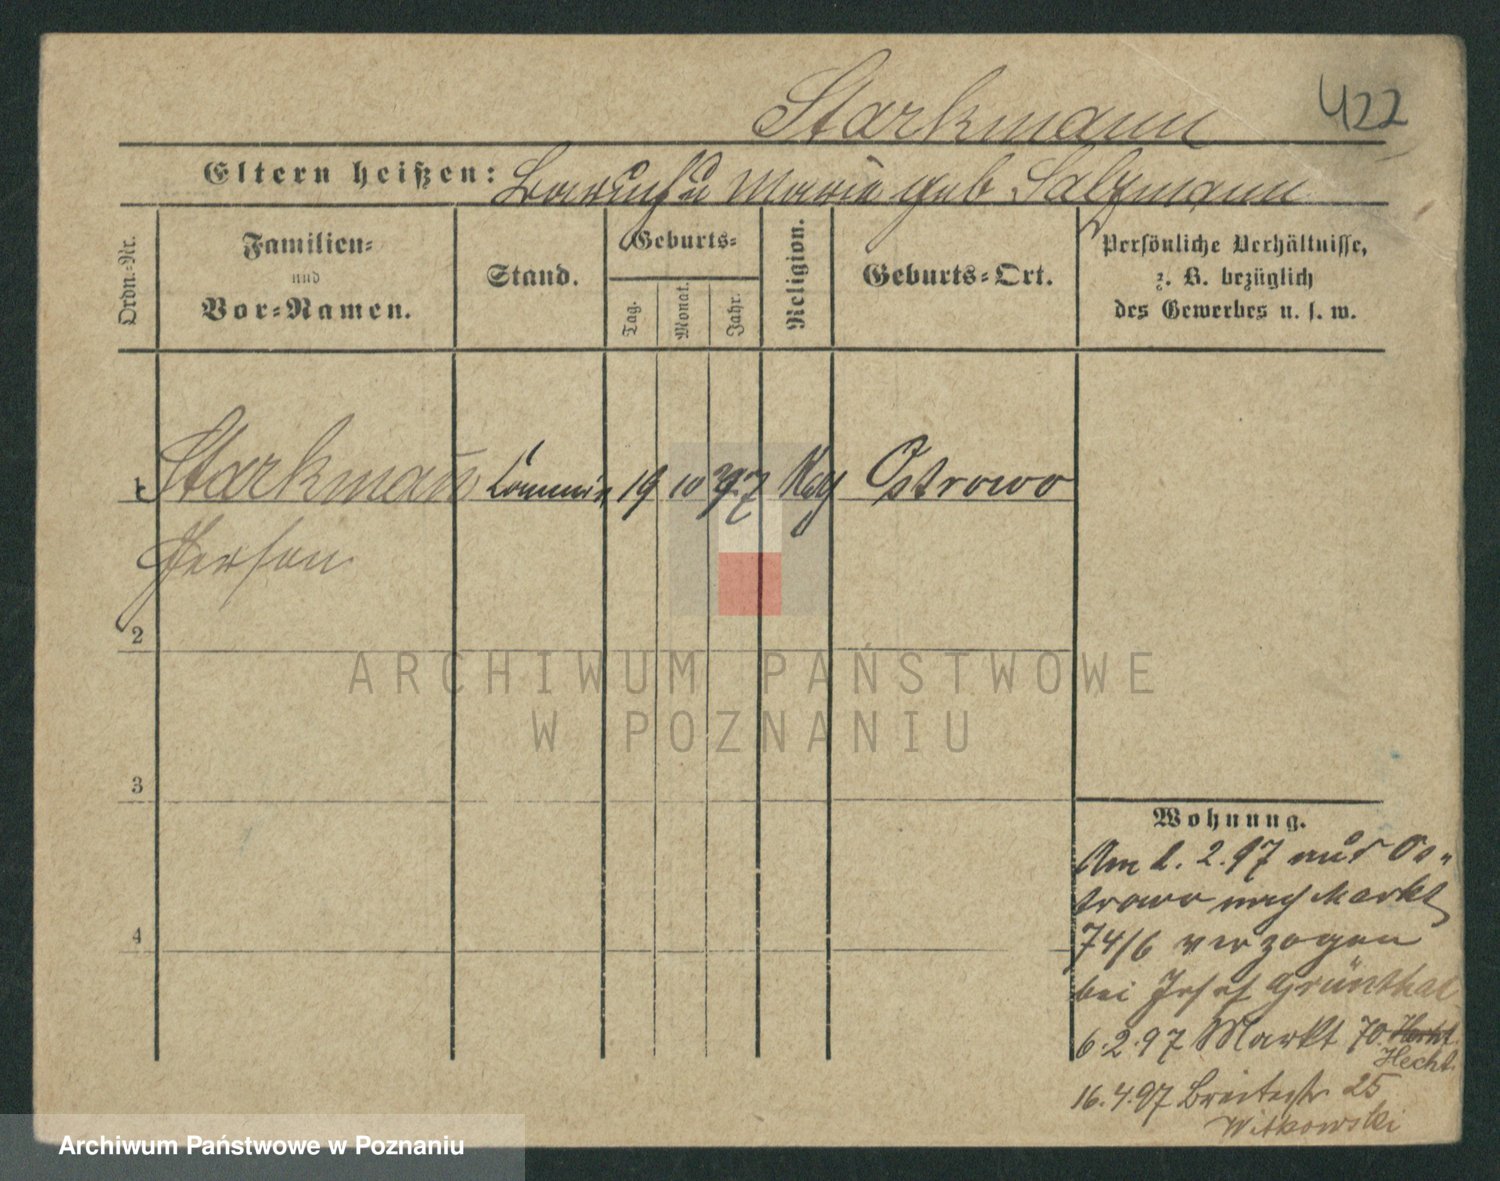 Starkmann
422
Eltern heißen: Baruch u Marie geb Salzmann
Ordn.-Nr.
Familien-
und
Vor-Namen.
Stand.
Geburts-
Tag.
Monat.
Jahr.
Religion.
Geburts-Ort.
Persönliche Verhältnisse,
z. B. bezüglich
des Gewerbes u. s. w.
1 Starkmann Commis 19 10 Ostrowo
Herson
2
ARCHIWUM PAŃSTWOWE
W POZNANIU
3
4
Wohnung.
Am 2. 97 aus Os-
trowo nach Markt
74/6 verzogen
bei Josef Grünthal
6.2.97 Markt 70
Hecht
16.4.97 Breitestr 25
Witkowski
Archiwum Państwowe w Poznaniu